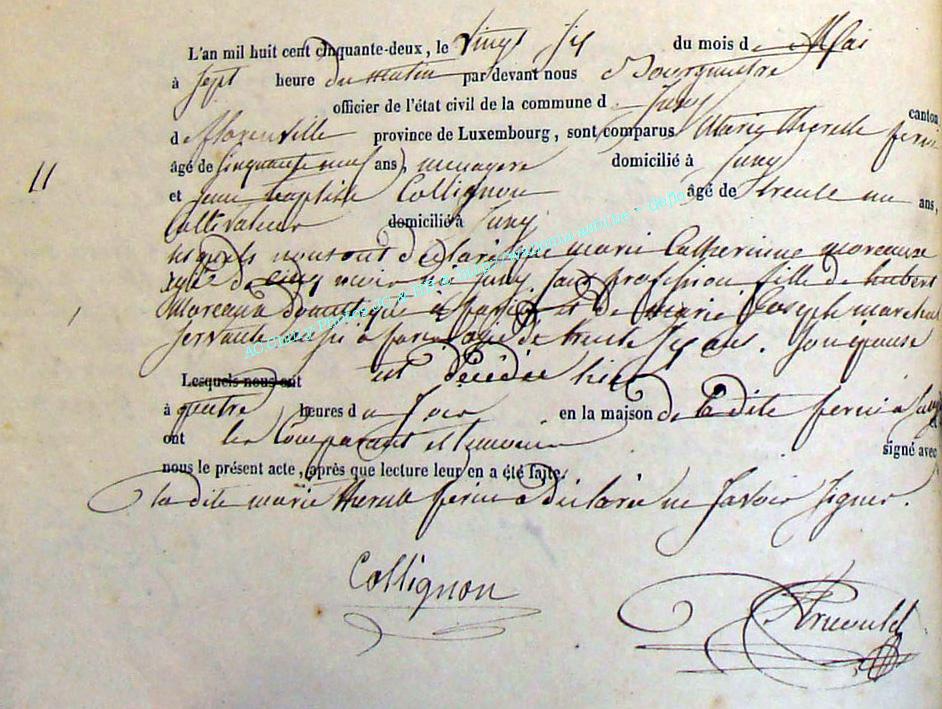 L'an mil huit cent cinquante-deux, le vingt six du mois de Mai
à sept heure du matin par devant nous Bourgmestre
officier de l'état civil de la commune d
canton
d florenville province de Luxembourg, sont comparus Marie therese
âgé de Cinquante neuf ans, menagere domicilié à
et jean baptiste Collignon âgé de trente un ans,
Cultivateur domicilié à
lesquels nous ont déclaré que marie Catherinne moreaux
agée de cinq mois sans profession fille de hubert
Moreaux domestique à paris et de marie Joseph
servante à paris agée de trente six ans. son épouse
Lesquels nous ont est décédée hier
à quatre heures du soir en la maison de la dite
et
ont les Comparant et temoin signé avec
nous le présent acte, après que lecture leur en a été faite.
la dite marie therese a déclaré ne savoir signer.
Collignon
11